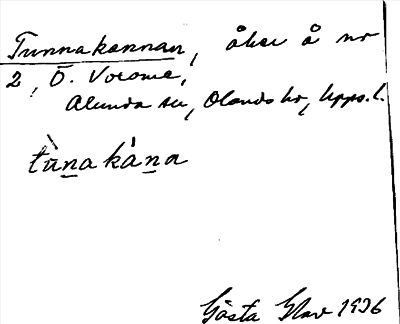 Tunnakannan, åker å nr
2, Ö. Vorome,
Alunda sn, Olands hr, Upps. l.
tùn̲akán̲a
Gösta 1936